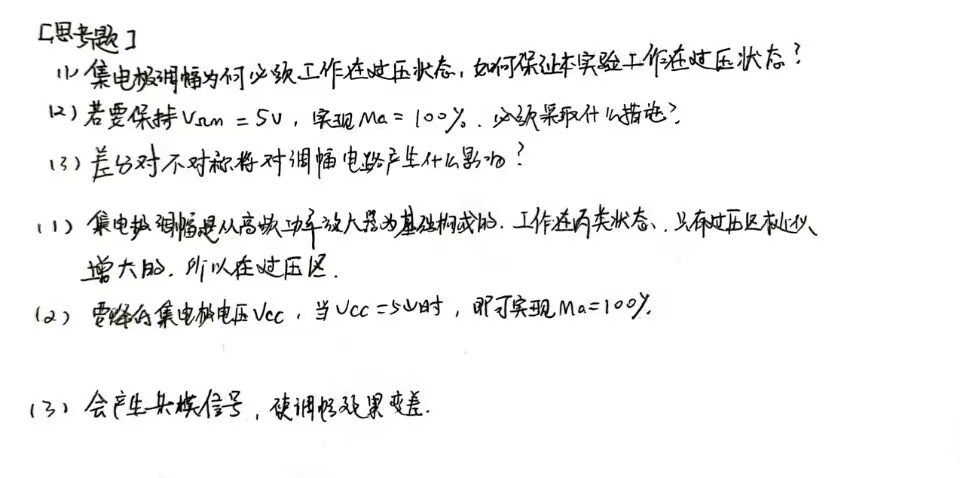 [思考题]
(1) 集电极调幅为何必须工作在过压状态,如何保证本实验工作在过压状态?
(2) 若要保持VΩm = 5V,实现Ma = 100%.必须采取什么措施?
(3) 差分对不对称将对调幅电路产生什么影响?
(1) 集电极调幅是从高频功率放大器为基础构成的.工作在丙类状态、只有过压区
增大的.所以在过压区.
(2) 需降低集电极电压Vcc,当Vcc=5V时,即可实现Ma=100%.
(3) 会产生共模信号,使调幅效果变差.